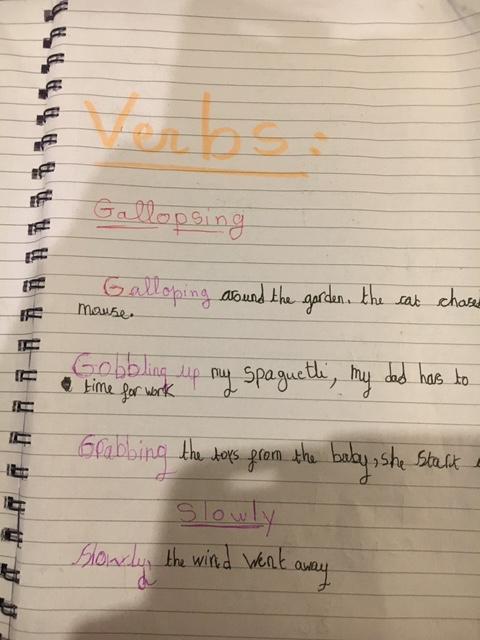 Verbs:
Gallopsing
Galloping around the garden. the cat chased
mouse.
Gobbling up my Spaguetti, my dad has to
time for work
Grabbing the toys from the baby, she start
Slowly
Slowly, the wind went away